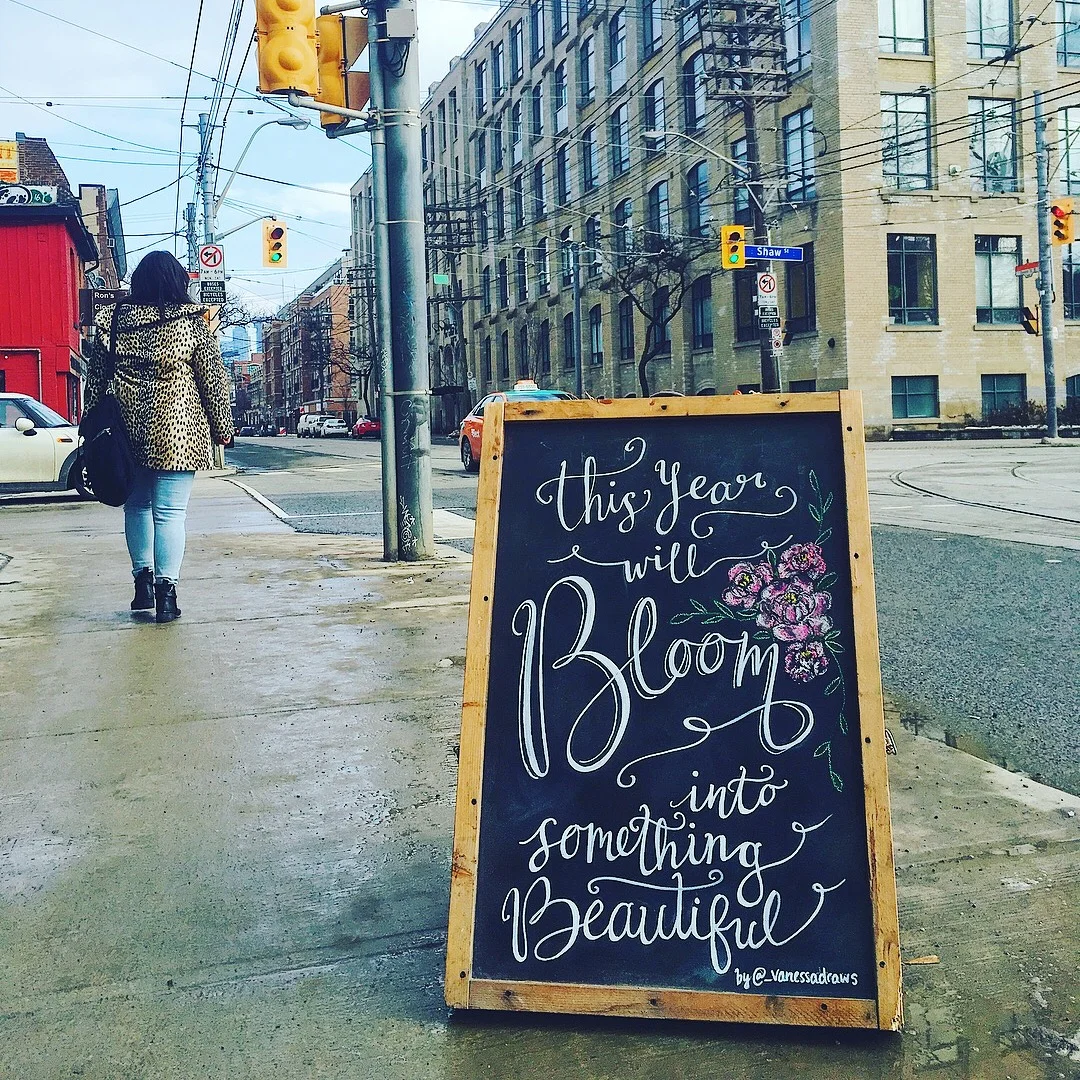 this year
will
Bloom
into
something
Beautiful
by @_vanessadraws
Shaw St
Ron's
7AM-6PM
BUSES
EXCEPTED
BICYCLES
EXCEPTED